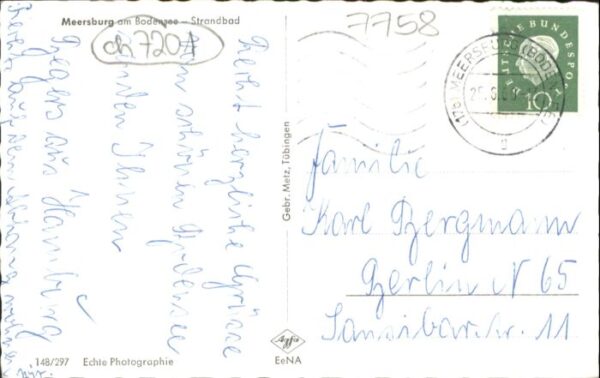 Meersburg am Bodensee – Strandbad
7758
ch 7201
Recht herzliche Grüsse
vom schönen Bodensee
senden Ihnen
aus Hamburg
Familie
Karl Bergmann
Berlin N 65
Sansibarstr. 11
DEUTSCHE BUNDESPOST
10
MEERSBURG (BODENSEE)
Gebr. Metz, Tübingen
Agfa
EeNA
148/297 Echte Photographie